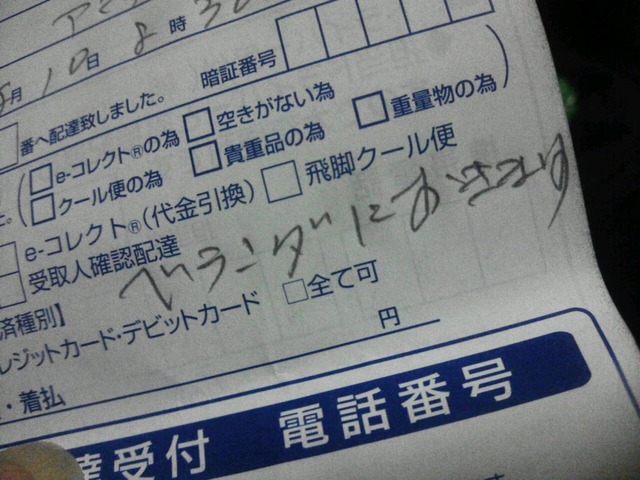 月10日 8時30
暗証番号
番へ配達致しました。
e-コレクト®の為 空きがない為
クール便の為 貴重品の為 重量物の為
e-コレクト®(代金引換) 飛脚クール便
受取人確認配達
ベランダにおきます
済種別】
レジットカード・デビットカード 全て可
円
・着払
達受付 電話番号